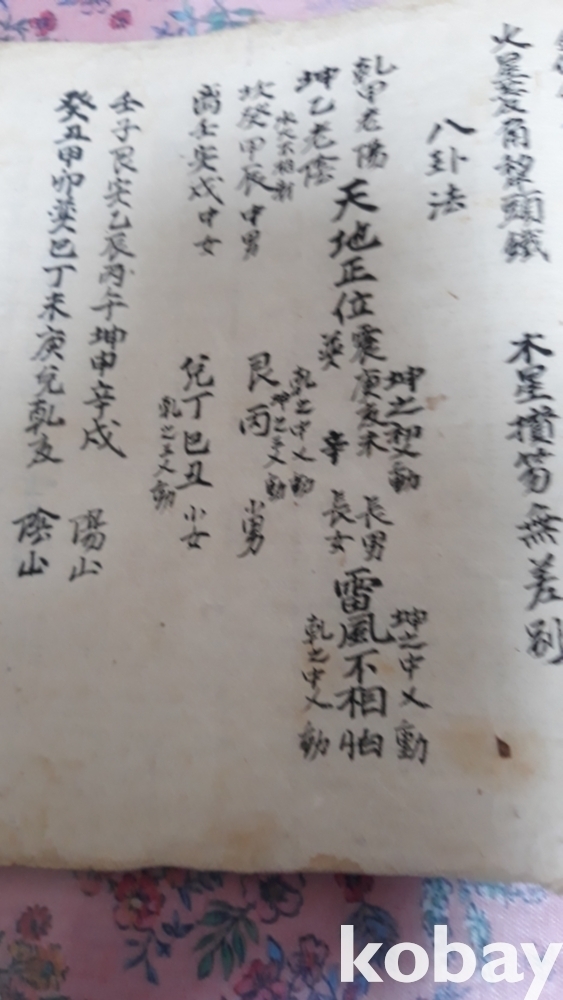 火星芒角犂頭鐵 木星墳笏無差別
八卦法
乾甲老陽
坤乙老陰
天地正位
震庚亥未 長男
坤之初乂動
巽辛 長女
雷風不相
坤之中乂動
乾之中乂動
坎癸甲辰中男
水火不相射
离壬寅戌中女
艮丙 小男
乾之中乂動
坤之三乂動
兌丁巳丑 小女
乾之三乂動
壬子艮寅乙辰丙午坤申辛戌 陽山
癸丑甲卯巽巳丁未庚兌乾亥 陰山
kobay